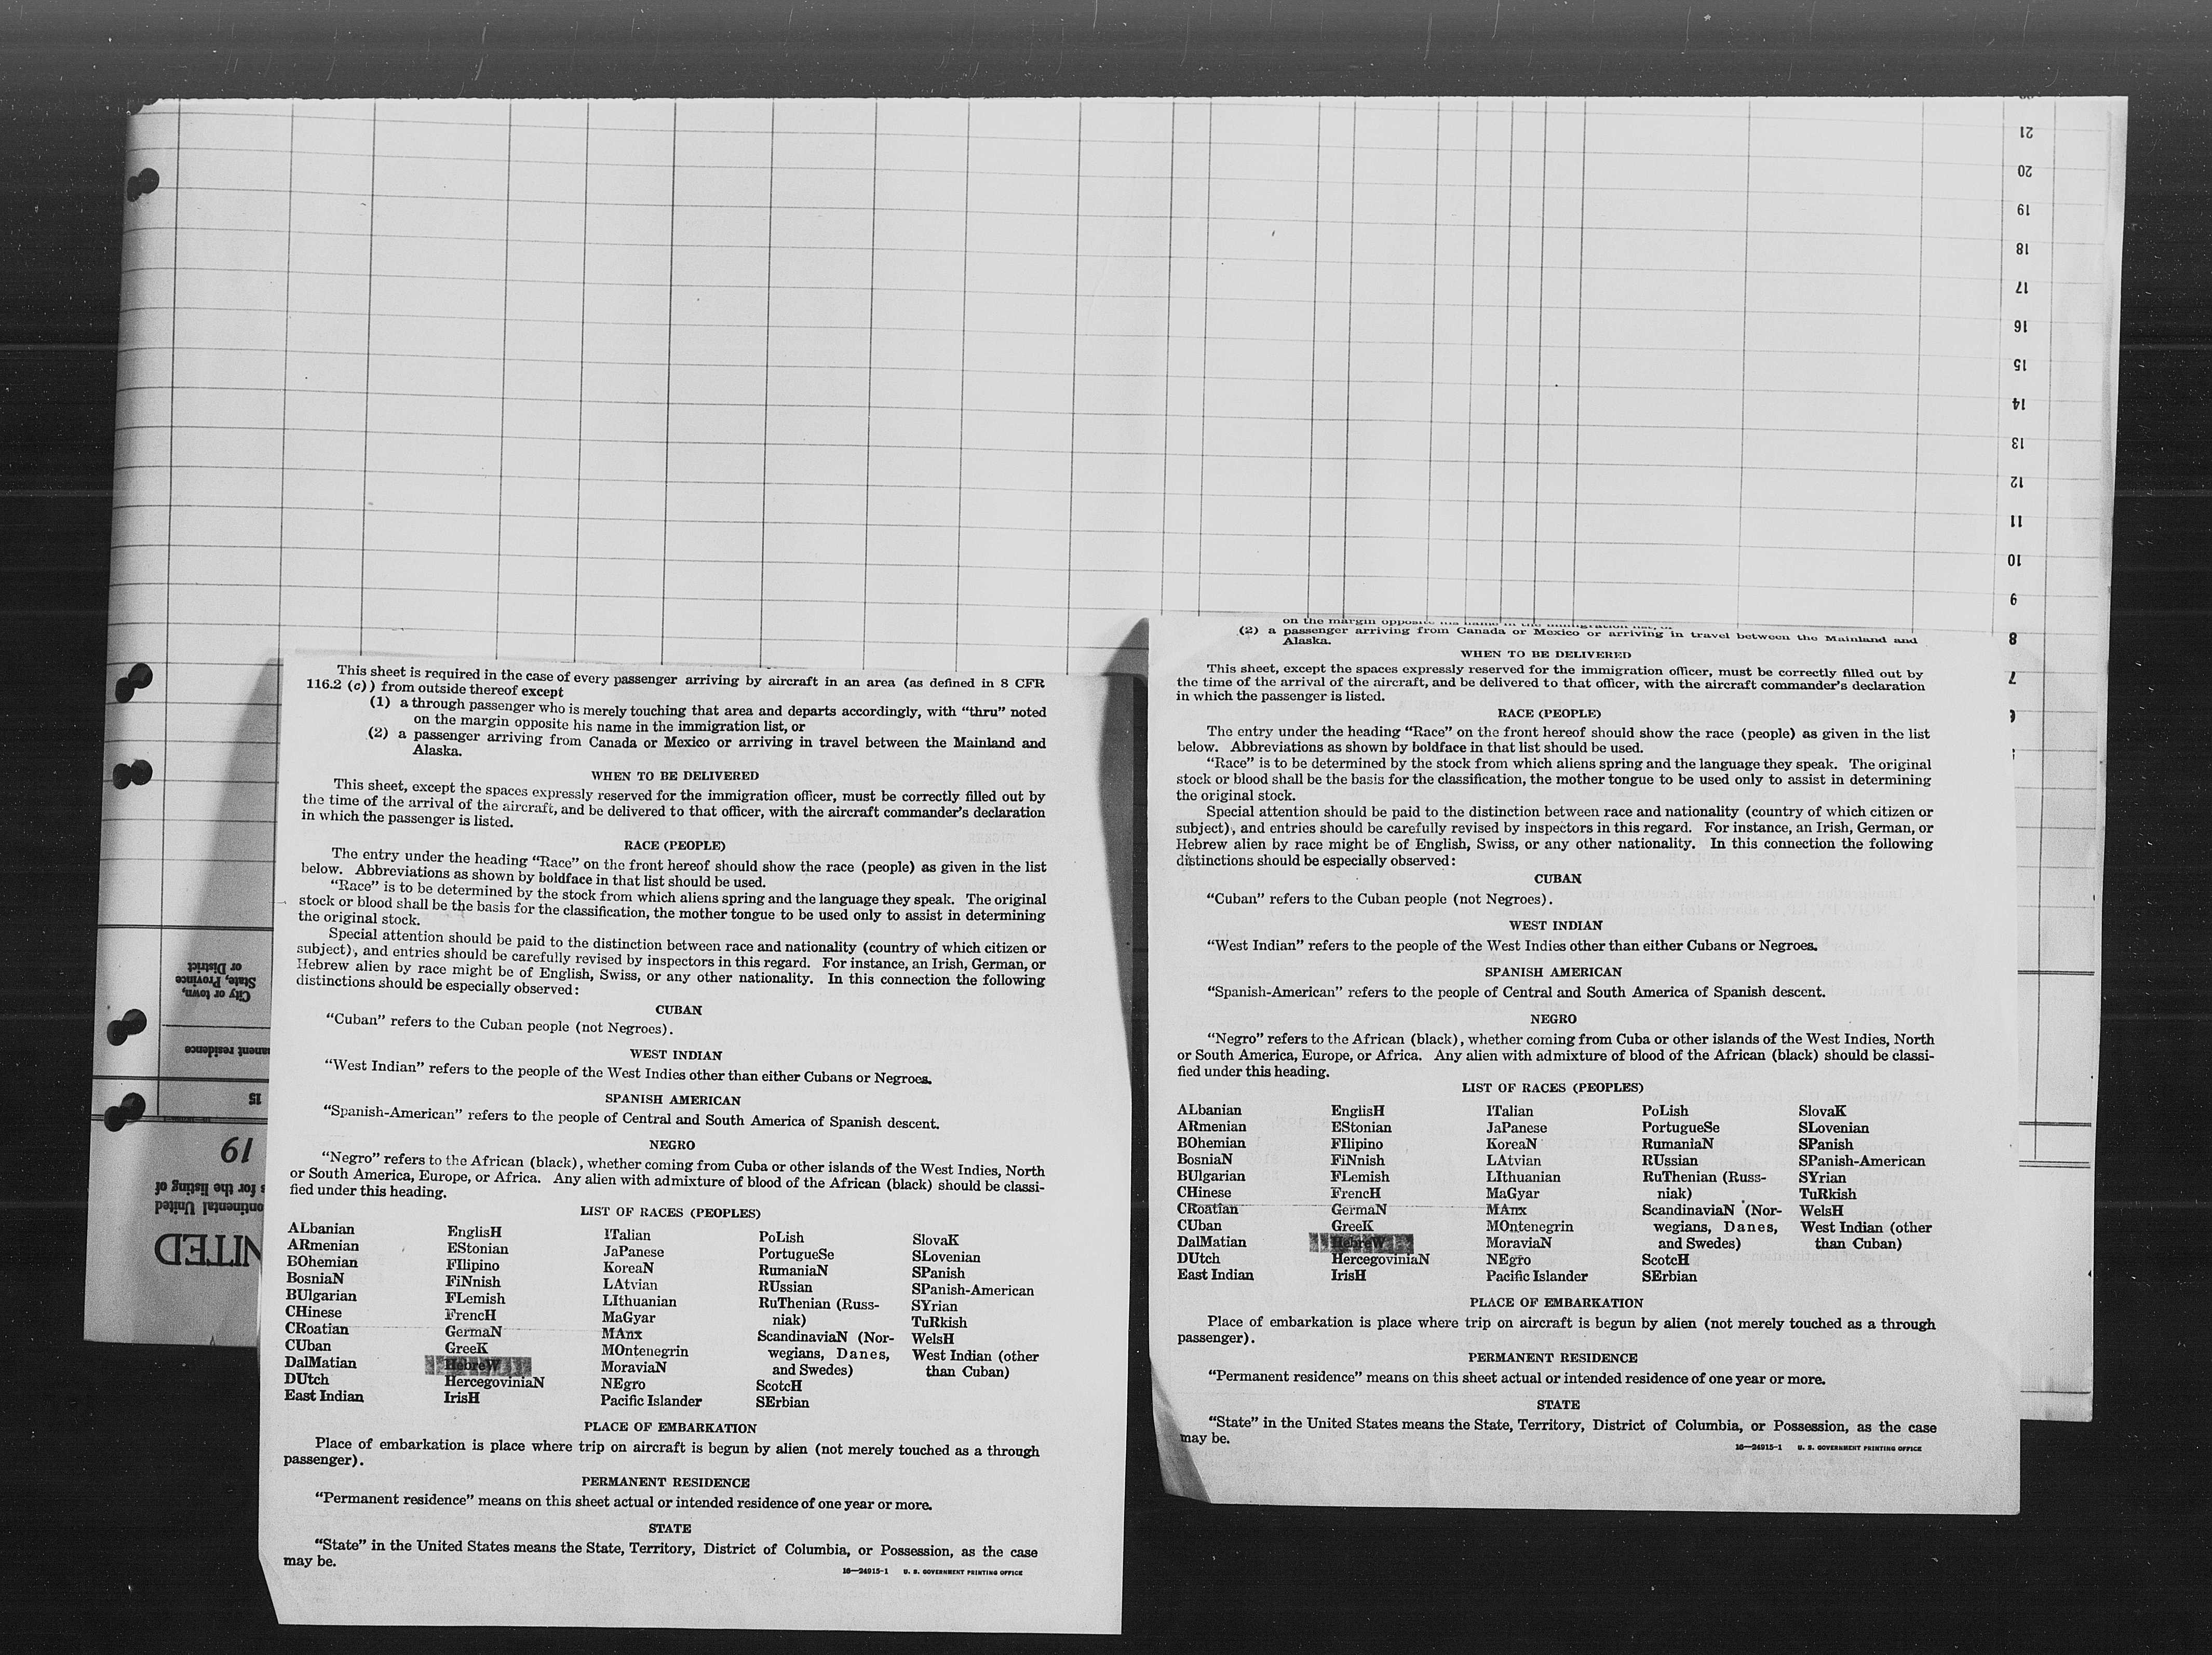 21
20
19
18
17
16
15
14
13
12
11
10
9
8
7
City or town,
State, Province
or District
anent residence
15
19
s for the listing of
ontinental United
NITED
This sheet is required in the case of every passenger arriving by aircraft in an area (as defined in 8 CFR
116.2 (c)) from outside thereof except
(1) a through passenger who is merely touching that area and departs accordingly, with "thru" noted
on the margin opposite his name in the immigration list, or
(2) a passenger arriving from Canada or Mexico or arriving in travel between the Mainland and
Alaska.
WHEN TO BE DELIVERED
This sheet, except the spaces expressly reserved for the immigration officer, must be correctly filled out by
the time of the arrival of the aircraft, and be delivered to that officer, with the aircraft commander's declaration
in which the passenger is listed.
RACE (PEOPLE)
The entry under the heading "Race" on the front hereof should show the race (people) as given in the list
below. Abbreviations as shown by boldface in that list should be used.
"Race" is to be determined by the stock from which aliens spring and the language they speak. The original
stock or blood shall be the basis for the classification, the mother tongue to be used only to assist in determining
the original stock.
Special attention should be paid to the distinction between race and nationality (country of which citizen or
subject), and entries should be carefully revised by inspectors in this regard. For instance, an Irish, German, or
Hebrew alien by race might be of English, Swiss, or any other nationality. In this connection the following
distinctions should be especially observed:
CUBAN
"Cuban" refers to the Cuban people (not Negroes).
WEST INDIAN
"West Indian" refers to the people of the West Indies other than either Cubans or Negroes.
SPANISH AMERICAN
"Spanish-American" refers to the people of Central and South America of Spanish descent.
NEGRO
"Negro" refers to the African (black), whether coming from Cuba or other islands of the West Indies, North
or South America, Europe, or Africa. Any alien with admixture of blood of the African (black) should be classi-
fied under this heading.
LIST OF RACES (PEOPLES)
ALbanian
ARmenian
BOhemian
BosniaN
BUlgarian
CHinese
CRoatian
CUban
DalMatian
DUtch
East Indian
EnglisH
EStonian
FIlipino
FiNnish
FLemish
FrencH
GermaN
GreeK
HebreW
HercegoviniaN
IrisH
ITalian
JaPanese
KoreaN
LAtvian
LIthuanian
MaGyar
MAnx
MOntenegrin
MoraviaN
NEgro
Pacific Islander
PoLish
PortugueSe
RumaniaN
RUssian
RuThenian (Russ-
niak)
ScandinaviaN (Nor-
wegians, Danes,
and Swedes)
ScotcH
SErbian
SlovaK
SLovenian
SPanish
SPanish-American
SYrian
TuRkish
WelsH
West Indian (other
than Cuban)
PLACE OF EMBARKATION
Place of embarkation is place where trip on aircraft is begun by alien (not merely touched as a through
passenger).
PERMANENT RESIDENCE
"Permanent residence" means on this sheet actual or intended residence of one year or more.
STATE
"State" in the United States means the State, Territory, District of Columbia, or Possession, as the case
may be.
16—24915-1 U. S. GOVERNMENT PRINTING OFFICE
on the margin
(2) a passenger arriving from Canada or Mexico or arriving in travel between the Mainland and
Alaska.
WHEN TO BE DELIVERED
This sheet, except the spaces expressly reserved for the immigration officer, must be correctly filled out by
the time of the arrival of the aircraft, and be delivered to that officer, with the aircraft commander's declaration
in which the passenger is listed.
RACE (PEOPLE)
The entry under the heading "Race" on the front hereof should show the race (people) as given in the list
below. Abbreviations as shown by boldface in that list should be used.
"Race" is to be determined by the stock from which aliens spring and the language they speak. The original
stock or blood shall be the basis for the classification, the mother tongue to be used only to assist in determining
the original stock.
Special attention should be paid to the distinction between race and nationality (country of which citizen or
subject), and entries should be carefully revised by inspectors in this regard. For instance, an Irish, German, or
Hebrew alien by race might be of English, Swiss, or any other nationality. In this connection the following
distinctions should be especially observed:
CUBAN
"Cuban" refers to the Cuban people (not Negroes).
WEST INDIAN
"West Indian" refers to the people of the West Indies other than either Cubans or Negroes.
SPANISH AMERICAN
"Spanish-American" refers to the people of Central and South America of Spanish descent.
NEGRO
"Negro" refers to the African (black), whether coming from Cuba or other islands of the West Indies, North
or South America, Europe, or Africa. Any alien with admixture of blood of the African (black) should be classi-
fied under this heading.
LIST OF RACES (PEOPLES)
ALbanian
ARmenian
BOhemian
BosniaN
BUlgarian
CHinese
CRoatian
CUban
DalMatian
DUtch
East Indian
EnglisH
EStonian
FIlipino
FiNnish
FLemish
FrencH
GermaN
GreeK
HebreW
HercegoviniaN
IrisH
ITalian
JaPanese
KoreaN
LAtvian
LIthuanian
MaGyar
MAnx
MOntenegrin
MoraviaN
NEgro
Pacific Islander
PoLish
PortugueSe
RumaniaN
RUssian
RuThenian (Russ-
niak)
ScandinaviaN (Nor-
wegians, Danes,
and Swedes)
ScotcH
SErbian
SlovaK
SLovenian
SPanish
SPanish-American
SYrian
TuRkish
WelsH
West Indian (other
than Cuban)
PLACE OF EMBARKATION
Place of embarkation is place where trip on aircraft is begun by alien (not merely touched as a through
passenger).
PERMANENT RESIDENCE
"Permanent residence" means on this sheet actual or intended residence of one year or more.
STATE
"State" in the United States means the State, Territory, District of Columbia, or Possession, as the case
may be.
16—24915-1 U. S. GOVERNMENT PRINTING OFFICE